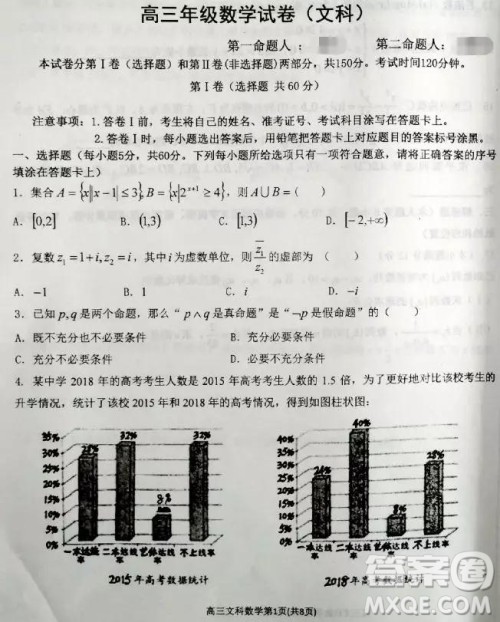 高三年级数学试卷（文科）
第一命题人： 第二命题人：
本试卷分第Ⅰ卷（选择题）和第Ⅱ卷(非选择题)两部分，共150分。考试时间120分钟。
第Ⅰ卷（选择题 共 60 分）
注意事项：1.答卷Ⅰ前，考生将自己的姓名、准考证号、考试科目涂写在答题卡上。
2.答卷Ⅰ时，每小题选出答案后，用铅笔把答题卡上对应题目的答案标号涂黑。
一、选择题（每小题5分，共60分。下列每小题所给选项只有一项符合题意，请将正确答案的序号
填涂在答题卡上）
1．集合 A={x||x−1|≤3},B={x|2^{x+1}≥4}，则 A∪B=（ ）
A．[0,2] B．(1,3) C．[1,3) D．[−2,+∞)
2．复数 z₁=1+i,z₂=i，其中 i 为虚数单位，则 \overline{z₁}/z₂ 的虚部为（ ）
A．−1 B．1 C．i D．−i
3．已知 p,q 是两个命题，那么“ p∧q 是真命题”是“¬p 是假命题”的（ ）
A．既不充分也不必要条件 B．充分必要条件
C．充分不必要条件 D．必要不充分条件
4．某中学 2018 年的高考考生人数是 2015 年高考考生人数的 1.5 倍，为了更好地对比该校考生的
升学情况，统计了该校 2015 年和 2018 年的高考情况，得到如图柱状图：
35%
30%
25%
20%
15%
10%
5%
0%
28% 32% 8% 32%
一本达线率 二本达线率 艺体达线率 不上线率
2015年高考数据统计
40%
35%
30%
25%
20%
15%
10%
5%
0%
24% 40% 8% 28%
一本达线率 二本达线率 艺体达线率 不上线率
2018年高考数据统计
高三文科数学第1页(共8页)
答案圈
MXQE.COM